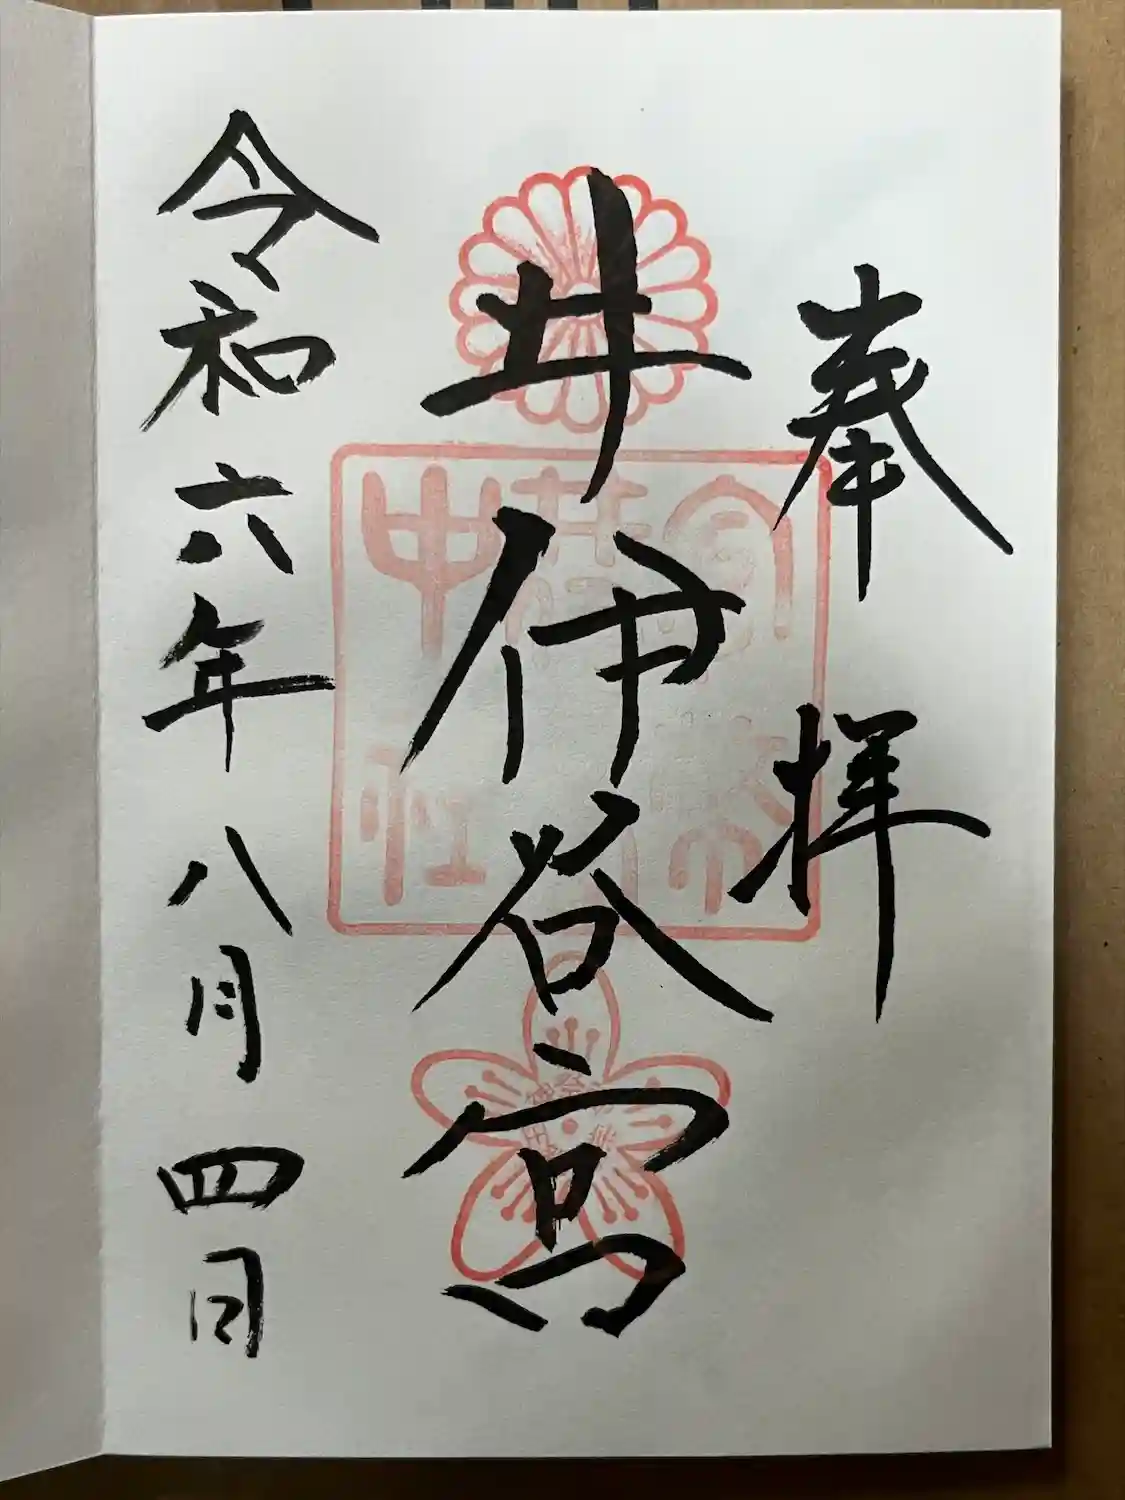 奉拝
井伊谷宮
令和六年八月四日